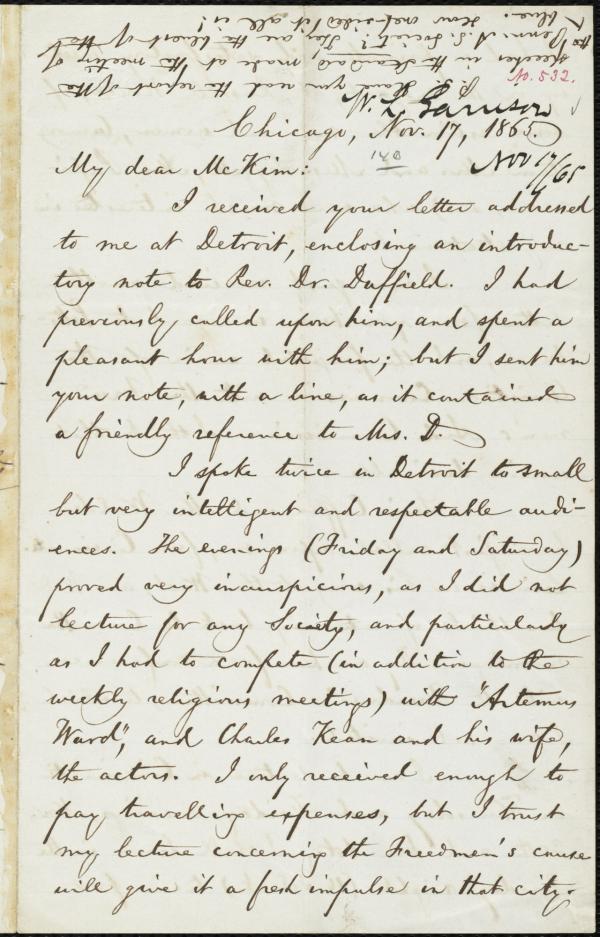 P.S. Have you read the report of the
speeches in the Standard, made at the meeting of
the Penn. A. S. Society? They are the bluest of the
blue. How one-sided it all is!
No. 532.
W. L. Garrison
Chicago, Nov. 17, 1865.
Nov 17/65
14B
My dear McKim:
I received your letter addressed
to me at Detroit, enclosing an introduc-
tory note to Rev. Dr. Duffield. I had
previously called upon him, and spent a
pleasant hour with him; but I sent him
your note, with a line, as it contained
a friendly reference to Mrs. D.
I spoke twice in Detroit to small
but very intelligent and respectable audi-
ences. The evenings (Friday and Saturday)
proved very inauspicious, as I did not
lecture for any Society, and particularly
as I had to compete (in addition to the
weekly religious meetings) with "Artemus
Ward", and Charles Kean and his wife,
the actors. I only received enough to
pay travelling expenses, but I trust
my lecture concerning the Freedmen's cause
will give it a fresh impulse in that city.